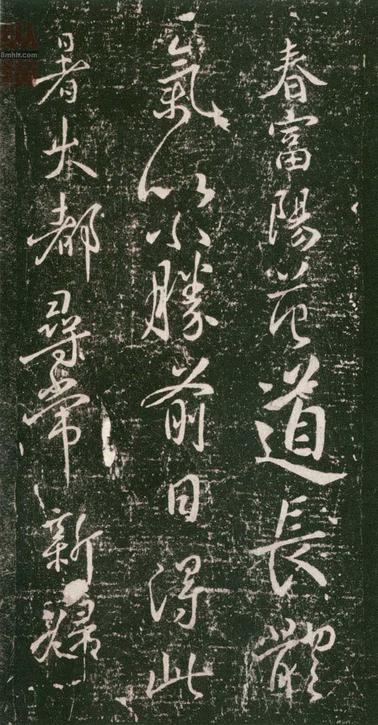 春富陽道長體
氣小勝前日得此
暑大都尋常新婦